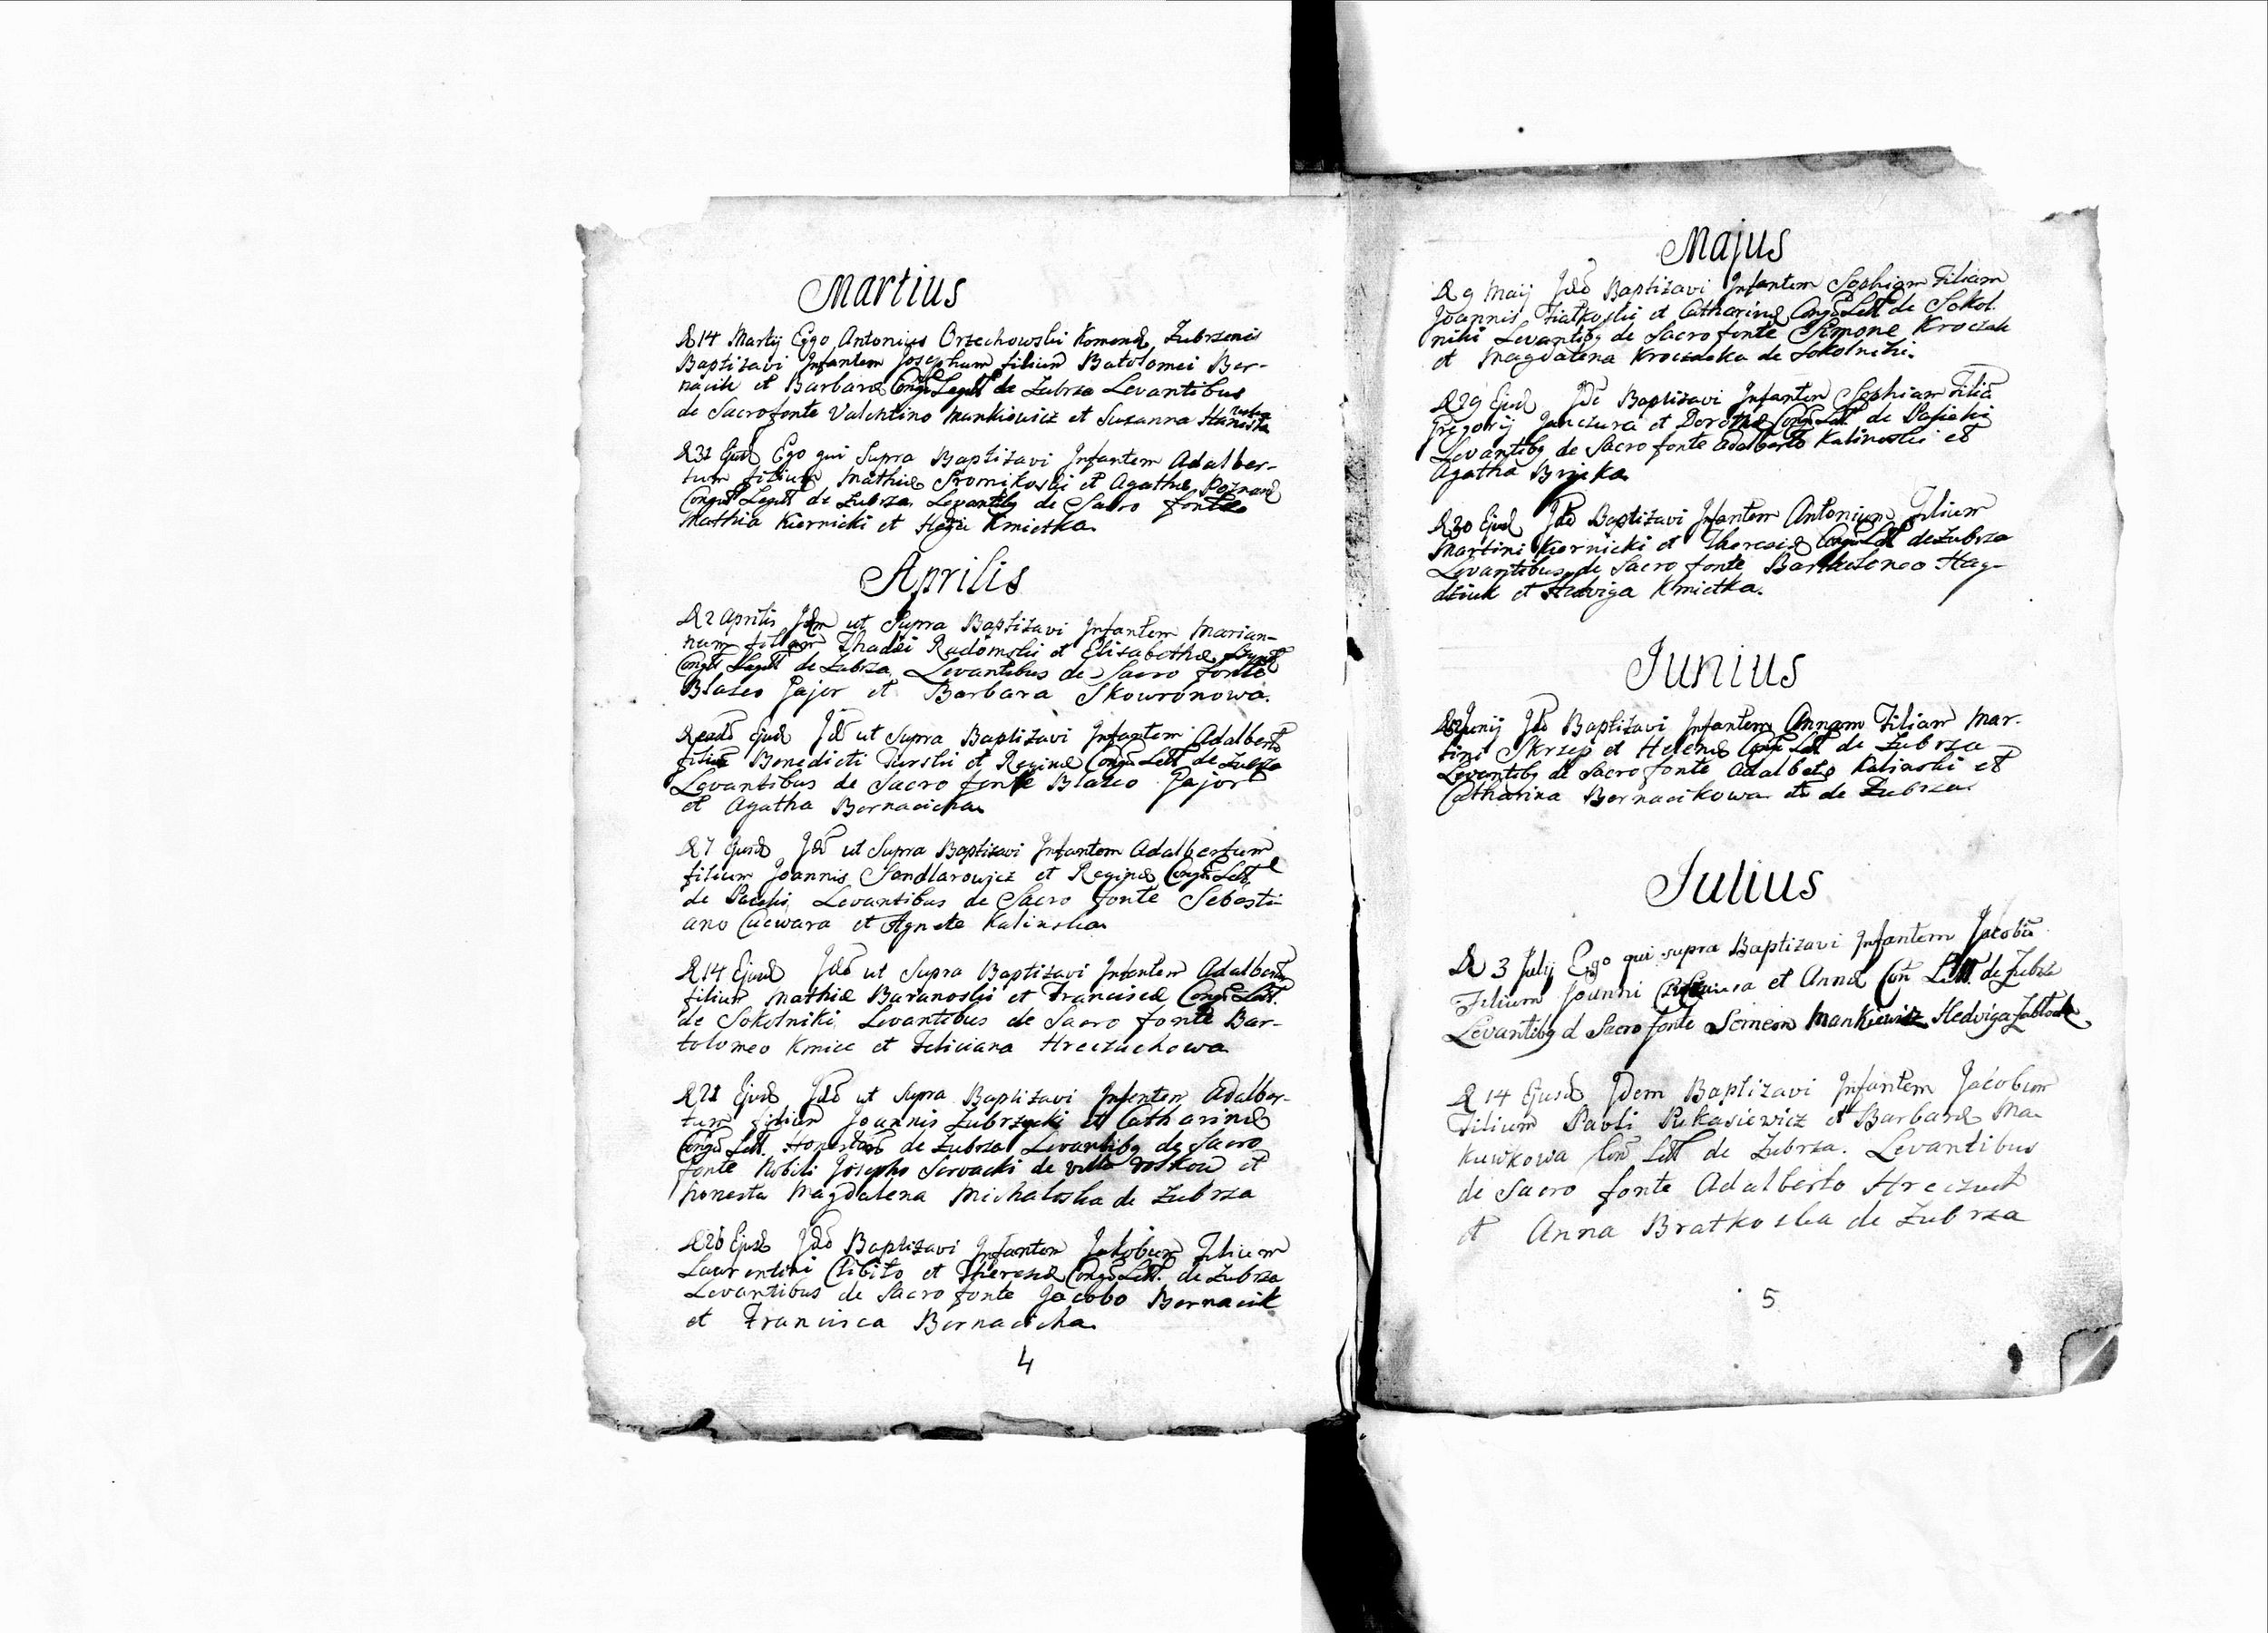 Martius
D 14 Martij Ego Antonius Orzechowski Komend Zubrzensis
Baptizavi Infantem Josephum filium Batolomei Ber-
nacik et Barbaræ Cong Legitt de Zubrza Levantibus
de Sacro fonte Valentino Mankiewicz et Suzanna
D 31 Ejusd Ego qui Supra Baptizavi Infantem Adalber-
tum filium Mathiæ et Agathæ
Conguu Legitt de Zubrza Levantibq de Sacro fonte
Mathia Kiernicki et Kmietka
Aprilis
D 2 Aprilis Idem ut Supra Baptizavi Infantem Marian-
nam filiam Thadei Radomski et Elisabethæ
Congu Legitt de Zubrza Levantibus de Sacro fonte
Blasio Gajor et Barbara Skowronowa.
Ejusd Idē ut Supra Baptizavi Infantem Adalbertū
filiū Benedicti Turski et Reginæ Congu LetT de Zubrza
Levantibus de Sacro fonte Blasio Gajor
et Agatha Bernacicha
D 7 Ejusd Idē ut Supra Baptizavi Infantem Adalbertum
filium Joannis Sandlarowicz et Reginæ Congu Letti
de Pasieki Levantibus de Sacro fonte Sebasti-
ano et Agnete Kalinska
D 14 Ejusd Idē ut Supra Baptizavi Infantem Adalbertū
filium Mathiæ Baranoski et Franciscæ Congu LetT.
de Sokolniki Levantibus de Sacro fonte Bar-
tolomeo Kmiec et Feliciana Hreczuchowa
D 21 Ejusd Idē ut Supra Baptizavi Infantem Adalber-
tum filium Joannis Zubrzycki et Catharinæ
Congu LetT. de Zubrza Levantibq de Sacro
fonte Nobili Josepho Serwacki de villa et
honesta Magdalena Michaloska de Zubrza
D 26 Ejusd Idē Baptizavi Infantem Jakobum Filium
Laurentini et Theresiæ Congu LetT. de Zubrza
Levantibus de Sacro fonte Jacobo Bernacik
et Francisca Bernacicha
4
Majus
D 9 Maij Idē Baptizavi Infantem Sophiam Filiam
Joannis Fiatkoski et Catharinæ Congu LetT de Sokol
niki Levantibq de Sacro fonte Simone Kroczak
et Magdalena Kroczacka de Sokolniki.
D 29 Ejusd Idē Baptizavi Infantem Sophiam Filiā
Gregorij Janczura et Dorothæ Congu LetT de Pasieki
Levantibq de Sacro fonte Adalberto Kalinoski et
Agatha
D 30 Ejusd Idē Baptizavi Infantem Antonium Filium
Martini Kiernicki et Theresiæ Congu LetT de Zubrza
Levantibus de Sacro fonte Bartholoneo Hay-
dziuk et Hedviga Kmietka.
Junius
Junij Idē Baptizavi Infantem Annam Filiam Mar-
tini Skrzep et Helenæ Congu LetT de Zubrza
Levantibq de Sacro fonte Adalbeto Kalinoski et
Catharina Bernacikowa de Zubrza
Julius
D 3 Julij Ego qui supra Baptizavi Infantem Jacobū
Filium Joanni et Annæ Coñ LetT. de Zubrza
Levantibq d Sacro fonte Semeon Mankiewicz Hedviga
D 14 Ejusd Idem Baptizavi Infantem Jacobum
Filium Pavli Pukasiewicz et Barbaræ Ma-
kuwkowa Coñ LetT de Zubrza. Levantibus
de Sacro fonte Adalberto Hreczuch
et Anna Bratkoska de Zubrza
5